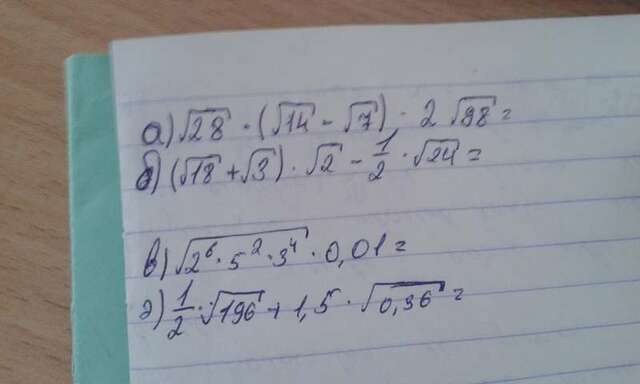 а) √28 · (√14 - √7) · 2√98 =
б) (√18 + √3) · √2 - 1/2 · √24 =
в) √2⁶ · 5² · 3⁴ · 0,01 =
г) 1/2 · √196 + 1,5 · √0,36 =